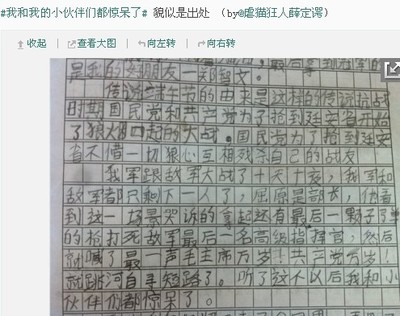 #我和我的小伙伴们都惊呆了# 貌似是出处 （by@虐猫狂人薛定谔）
收起 | 查看大图 向左转 向右转
是我的好朋友一郑智文。
传说端午节的由来是这样的传说抗战
时期国民党和共产党为了抢到延安省开始
了狼烟四起的大战。国民党为了抢到廷安
省不惜一切狠心互相残杀自己的战友
我军跟敌军大战了十天十亥，我军和
敌军都只剩下一人了，屈原是部长，他看
到这一场景哭诉的拿起还有最后一颗子了单
的枪打死敌军最后一名高级指挥官，然后
就喊了最一声毛主席万岁！共产党万岁！
就跳河自寻短路了。听了这个以后我和小
伙伴们都惊呆了。